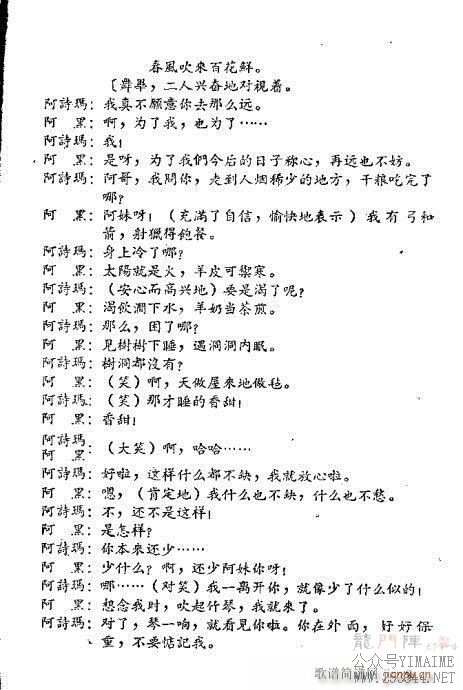 春風吹来百花鮮。
〔舞畢，二人兴奋地对視着。
阿詩瑪：我真不願意你去那么远。
阿　黑：啊，为了我，也为了……
阿詩瑪：我！
阿　黑：是呀，为了我們今后的日子称心，再远也不妨。
阿詩瑪：阿哥，我問你，走到人烟稀少的地方，干粮吃完了
哪？
阿　黑：阿妹呀！（充滿了自信，愉快地表示）我有弓和
箭，射獵得飽餐。
阿詩瑪：身上冷了哪？
阿　黑：太陽就是火，羊皮可禦寒。
阿詩瑪：（安心而高兴地）要是渴了呢？
阿　黑：渴飲澗下水，羊奶当茶煎。
阿詩瑪：那么，困了哪？
阿　黑：見樹樹下睡，遇洞洞内眠。
阿詩瑪：樹洞都沒有？
阿　黑：（笑）啊，天做屋来地做毡。
阿詩瑪：（笑）那才睡的香甜！
阿　黑：香甜！
阿詩瑪：
阿　黑：（大笑）啊，哈哈……
阿詩瑪：好啦，这样什么都不缺，我就放心啦。
阿　黑：嗯，（肯定地）我什么也不缺，什么也不愁。
阿詩瑪：不，还不是这样！
阿　黑：是怎样？
阿詩瑪：你本来还少……
阿　黑：少什么？啊，还少阿妹你呀！
阿詩瑪：哪……（对笑）我一离开你，就像少了什么似的！
阿　黑：想念我时，吹起竹琴，我就来了。
阿詩瑪：对了，琴一响，就看見你啦。你在外面，好好保
重，不要惦記我。
龍門陣
歌谱简谱网
公众号YIMAIME